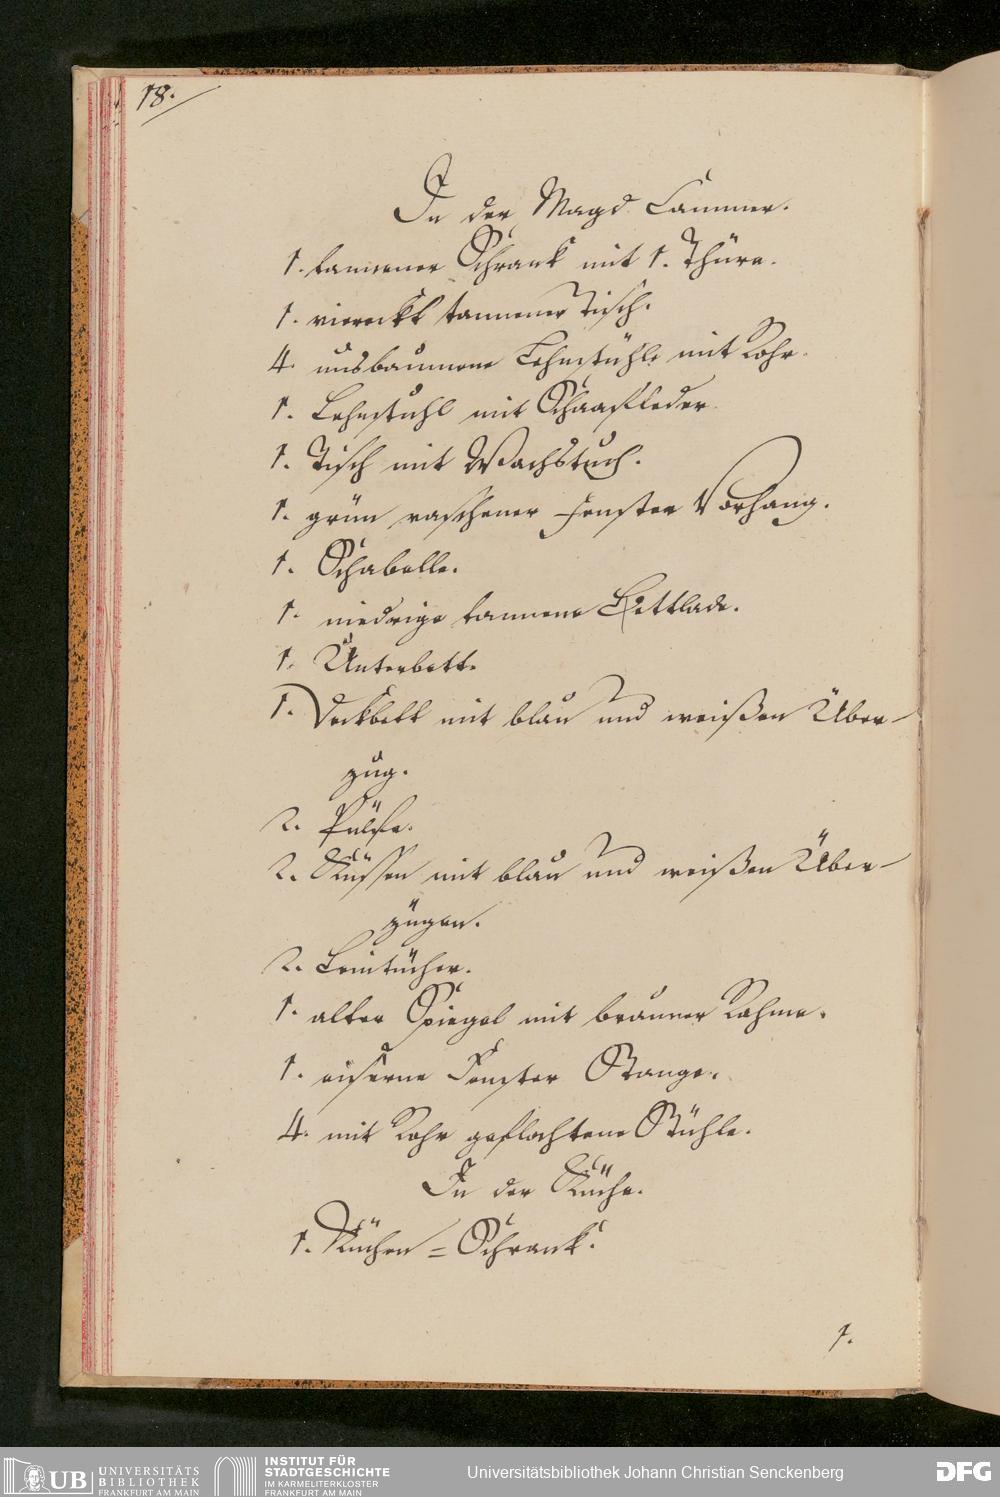 18.
In der Magd Cammer.
1. tannener Schrank mit 1. Thüre.
1. viereckt tannener Tisch.
4. nusbaumene Lehnstühle mit Rohr.
1. Lehnstuhl mit Schaafleder.
1. Tisch mit Wachstuch.
1. grün raschener Fenster Vorhang.
1. Schabelle.
1. niedrige tannene Bettlade.
1. Unterbett.
1. Deckbett mit blau und weißen Über-
zug.
2. Pülfe.
2. Küssen mit blau und weißen Über-
zügen.
2. Leintücher.
1. alter Spiegel mit brauner Rahme.
1. eiserne Fenster Stange.
4. mit Rohr geflochtene Stühle.
In der Küche.
1. Küchen=Schrank.
1.
UB UNIVERSITÄTS
BIBLIOTHEK
FRANKFURT AM MAIN
INSTITUT FÜR
STADTGESCHICHTE
IM KARMELITERKLOSTER
FRANKFURT AM MAIN
Universitätsbibliothek Johann Christian Senckenberg
DFG